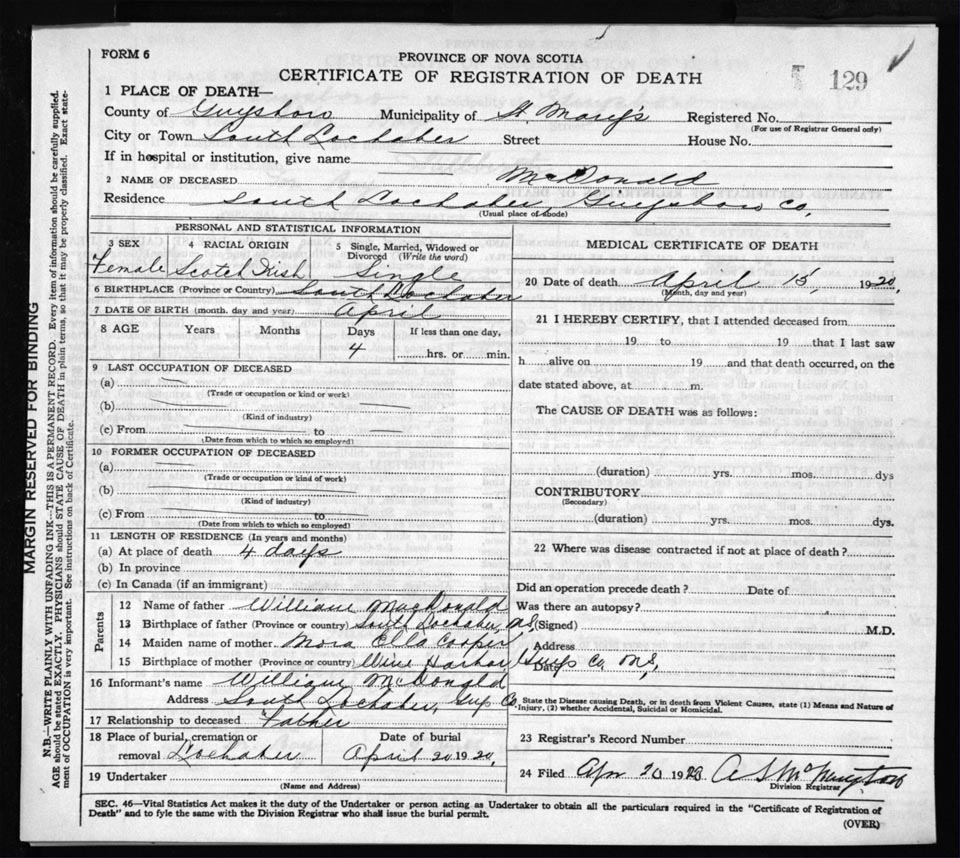 FORM 6
PROVINCE OF NOVA SCOTIA
CERTIFICATE OF REGISTRATION OF DEATH
129
1 PLACE OF DEATH—
County of Guysboro Municipality of St. Mary's Registered No.
(For use of Registrar General only)
City or Town South Lochaber Street House No.
If in hospital or institution, give name
2 NAME OF DECEASED McDonald
Residence South Lochaber, Guysboro Co,
(Usual place of abode)
PERSONAL AND STATISTICAL INFORMATION
3 SEX 4 RACIAL ORIGIN 5 Single, Married, Widowed or Divorced (Write the word)
Female Scotch Irish Single
6 BIRTHPLACE (Province or Country) South Lochaber
7 DATE OF BIRTH (month, day and year) April
8 AGE Years Months Days If less than one day,
4 hrs. or min.
9 LAST OCCUPATION OF DECEASED
(a)
(Trade or occupation or kind or work)
(b)
(Kind of industry)
(c) From to
(Date from which to which so employed)
10 FORMER OCCUPATION OF DECEASED
(a)
(Trade or occupation or kind of work)
(b)
(Kind of industry)
(c) From to
(Date from which to which so employed)
11 LENGTH OF RESIDENCE (In years and months)
(a) At place of death 4 days
(b) In province
(c) In Canada (if an immigrant)
Parents
12 Name of father William MacDonald
13 Birthplace of father (Province or country) South Lochaber, NS
14 Maiden name of mother Mora Ella Cooper
15 Birthplace of mother (Province or country) Wine Harbor Guys Co. NS,
16 Informant's name William McDonald
Address South Lochaber, Guy Co.
17 Relationship to deceased Father
18 Place of burial, cremation or removal Lochaber Date of burial April 20 1920,
19 Undertaker
(Name and Address)
MEDICAL CERTIFICATE OF DEATH
20 Date of death April 15, 1920,
(Month, day and year)
21 I HEREBY CERTIFY, that I attended deceased from
19 to 19 that I last saw
h alive on 19 and that death occurred, on the
date stated above, at m.
The CAUSE OF DEATH was as follows:
(duration) yrs. mos. dys
CONTRIBUTORY
(Secondary)
(duration) yrs. mos. dys.
22 Where was disease contracted if not at place of death?
Did an operation precede death? Date of
Was there an autopsy?
(Signed) M.D.
Address
Date
State the Disease causing Death, or in death from Violent Causes, state (1) Means and Nature of
Injury, (2) whether Accidental, Suicidal or Homicidal.
23 Registrar's Record Number
24 Filed Apr 20 1920
Division Registrar
SEC. 46—Vital Statistics Act makes it the duty of the Undertaker or person acting as Undertaker to obtain all the particulars required in the "Certificate of Registration of
Death" and to fyle the same with the Division Registrar who shall issue the burial permit.
(OVER)
MARGIN RESERVED FOR BINDING
N.B.—WRITE PLAINLY WITH UNFADING INK—THIS IS A PERMANENT RECORD. Every item of information should be carefully supplied.
AGE should be stated EXACTLY. PHYSICIANS should STATE CAUSE OF DEATH in plain terms, so that it may be properly classified. Exact state-
ment of OCCUPATION is very important. See instructions on back of Certificate.